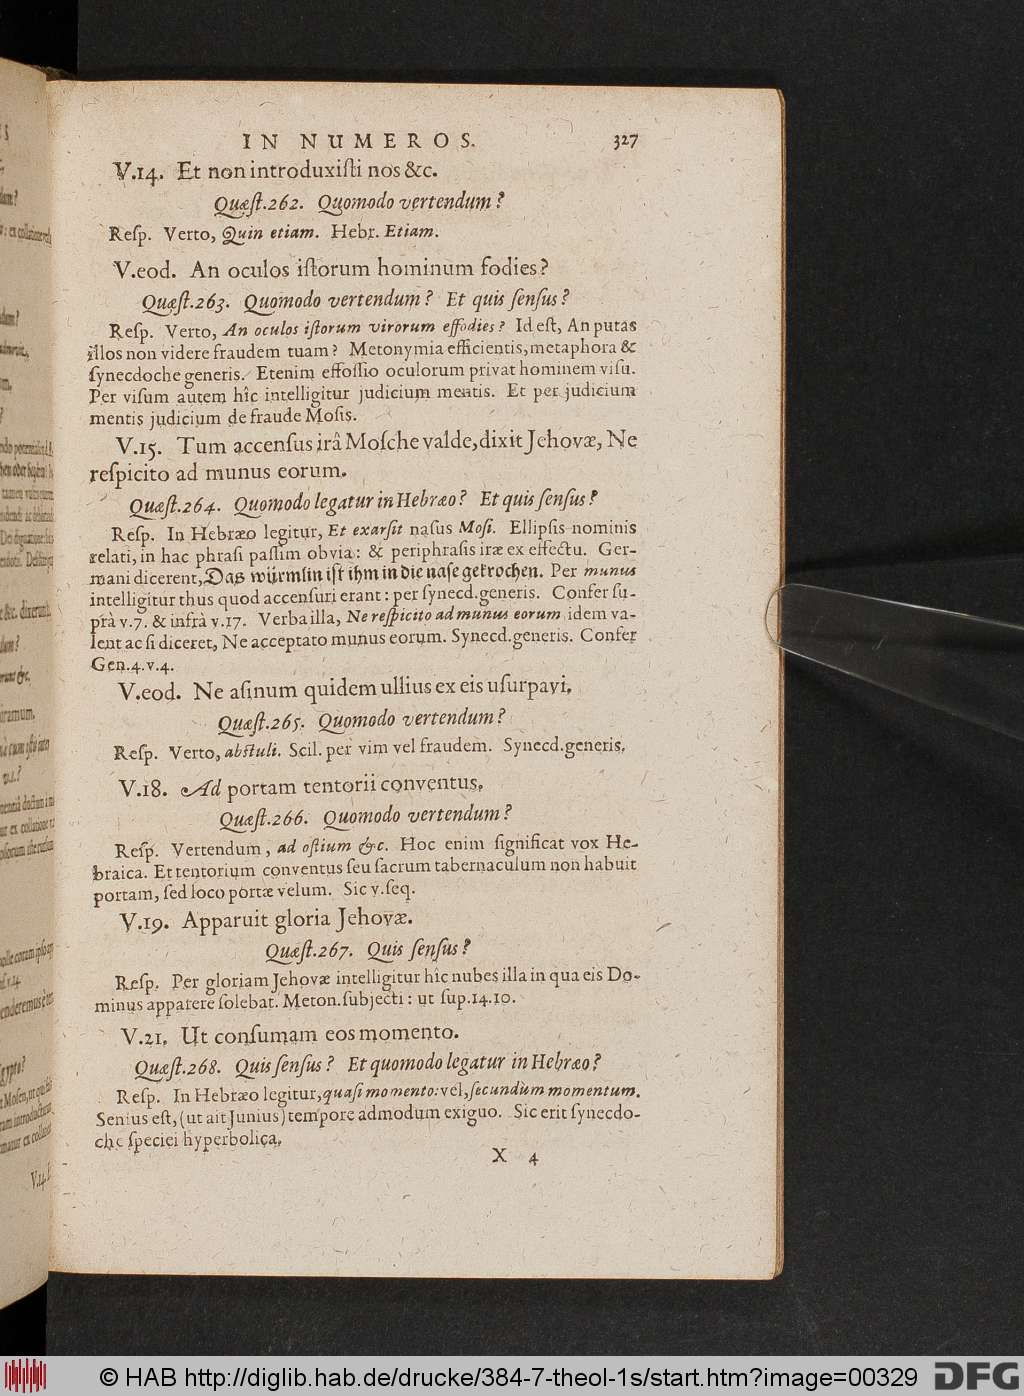 IN NUMEROS. 327
V.14. Et non introduxiſti nos &c.
Quæſt.262. Quomodo vertendum?
Reſp. Verto, Quin etiam. Hebr. Etiam.
V.eod. An oculos iſtorum hominum fodies?
Quæſt.263. Quomodo vertendum? Et quis ſenſus?
Reſp. Verto, An oculos iſtorum virorum effodies? Id eſt, An putas
illos non videre fraudem tuam? Metonymia efficientis, metaphora &
ſynecdoche generis. Etenim effoſſio oculorum privat hominem viſu.
Per viſum autem hîc intelligitur judicium mentis. Et per judicium
mentis judicium de fraude Moſis.
V.15. Tum accenſus irâ Moſche valde, dixit Jehovæ, Ne
reſpicito ad munus eorum.
Quæſt.264. Quomodo legatur in Hebræo? Et quis ſenſus?
Reſp. In Hebræo legitur, Et exarſit naſus Moſi. Ellipſis nominis
relati, in hac phraſi paſſim obvia: & periphraſis iræ ex effectu. Ger-
mani dicerent, Das würmlin iſt ihm in die naſe gekrochen. Per munus
intelligitur thus quod accenſuri erant: per ſynecd.generis. Confer ſu-
prà v.7. & infrà v.17. Verba illa, Ne reſpicito ad munus eorum idem va-
lent ac ſi diceret, Ne acceptato munus eorum. Synecd.generis. Confer
Gen.4.v.4.
V.eod. Ne aſinum quidem ullius ex eis uſurpavi.
Quæſt.265. Quomodo vertendum?
Reſp. Verto, abſtuli. Scil. per vim vel fraudem. Synecd.generis.
V.18. Ad portam tentorii conventus.
Quæſt.266. Quomodo vertendum?
Reſp. Vertendum, ad oſtium &c. Hoc enim ſignificat vox He-
braica. Et tentorium conventus ſeu ſacrum tabernaculum non habuit
portam, ſed loco portæ velum. Sic v.ſeq.
V.19. Apparuit gloria Jehovæ.
Quæſt.267. Quis ſenſus?
Reſp. Per gloriam Jehovæ intelligitur hîc nubes illa in qua eis Do-
minus apparere ſolebat. Meton.ſubjecti: ut ſup.14.10.
V.21. Ut conſumam eos momento.
Quæſt.268. Quis ſenſus? Et quomodo legatur in Hebræo?
Reſp. In Hebræo legitur, quaſi momento: vel, ſecundùm momentum.
Senſus eſt, (ut ait Junius) tempore admodum exiguo. Sic erit ſynecdo-
che ſpeciei hyperbolica.
X 4
© HAB http://diglib.hab.de/drucke/384-7-theol-1s/start.htm?image=00329
DFG